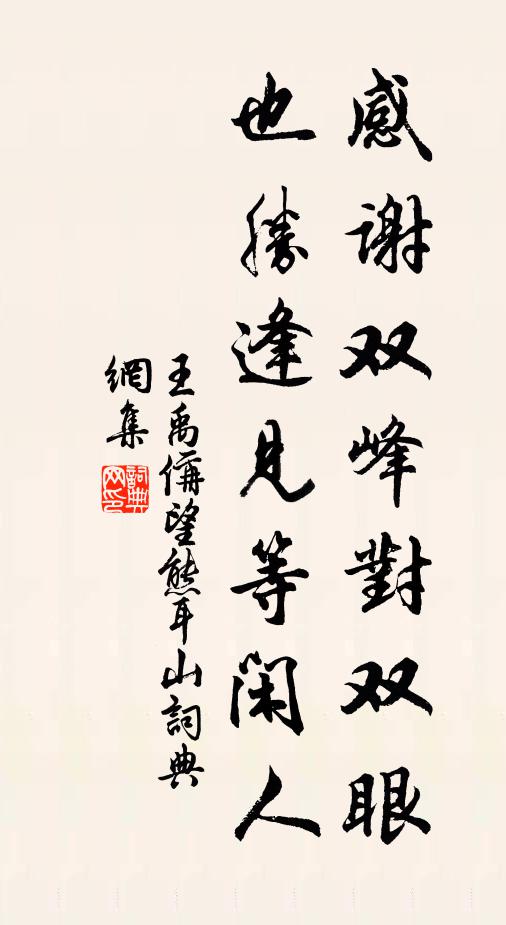 感谢双峰對双眼
也勝逢見等閑人
王禹偁望熊耳山詞典
網集
詞典
网印